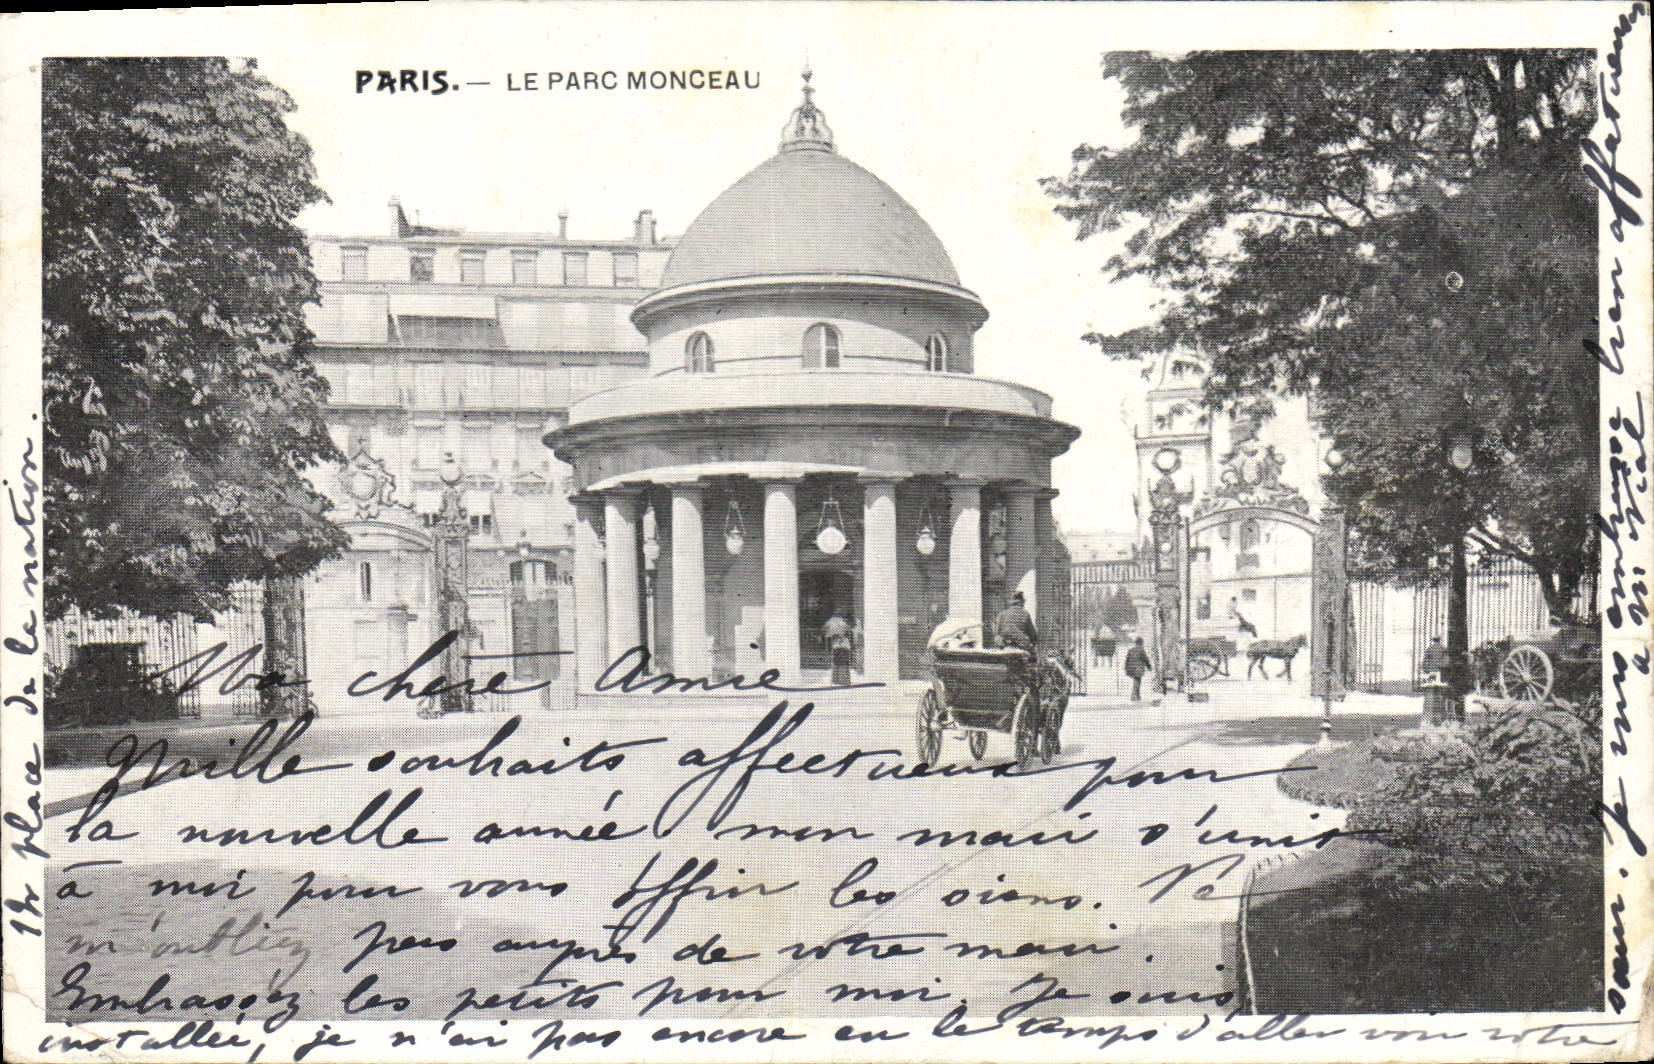 PARIS. — LE PARC MONCEAU
Ma chère Amie
Mille souhaits affectueux pour
la nouvelle année. mon mari s'unit
à moi pour vous offrir les siens. Ne
m'oubliez pas auprès de votre mari.
Embrassez les petits pour moi. Je suis
installée, je n'ai pas encore eu le temps d'aller voir votre
sœur. Je vous embrasse bien affectueus
place de la nation.